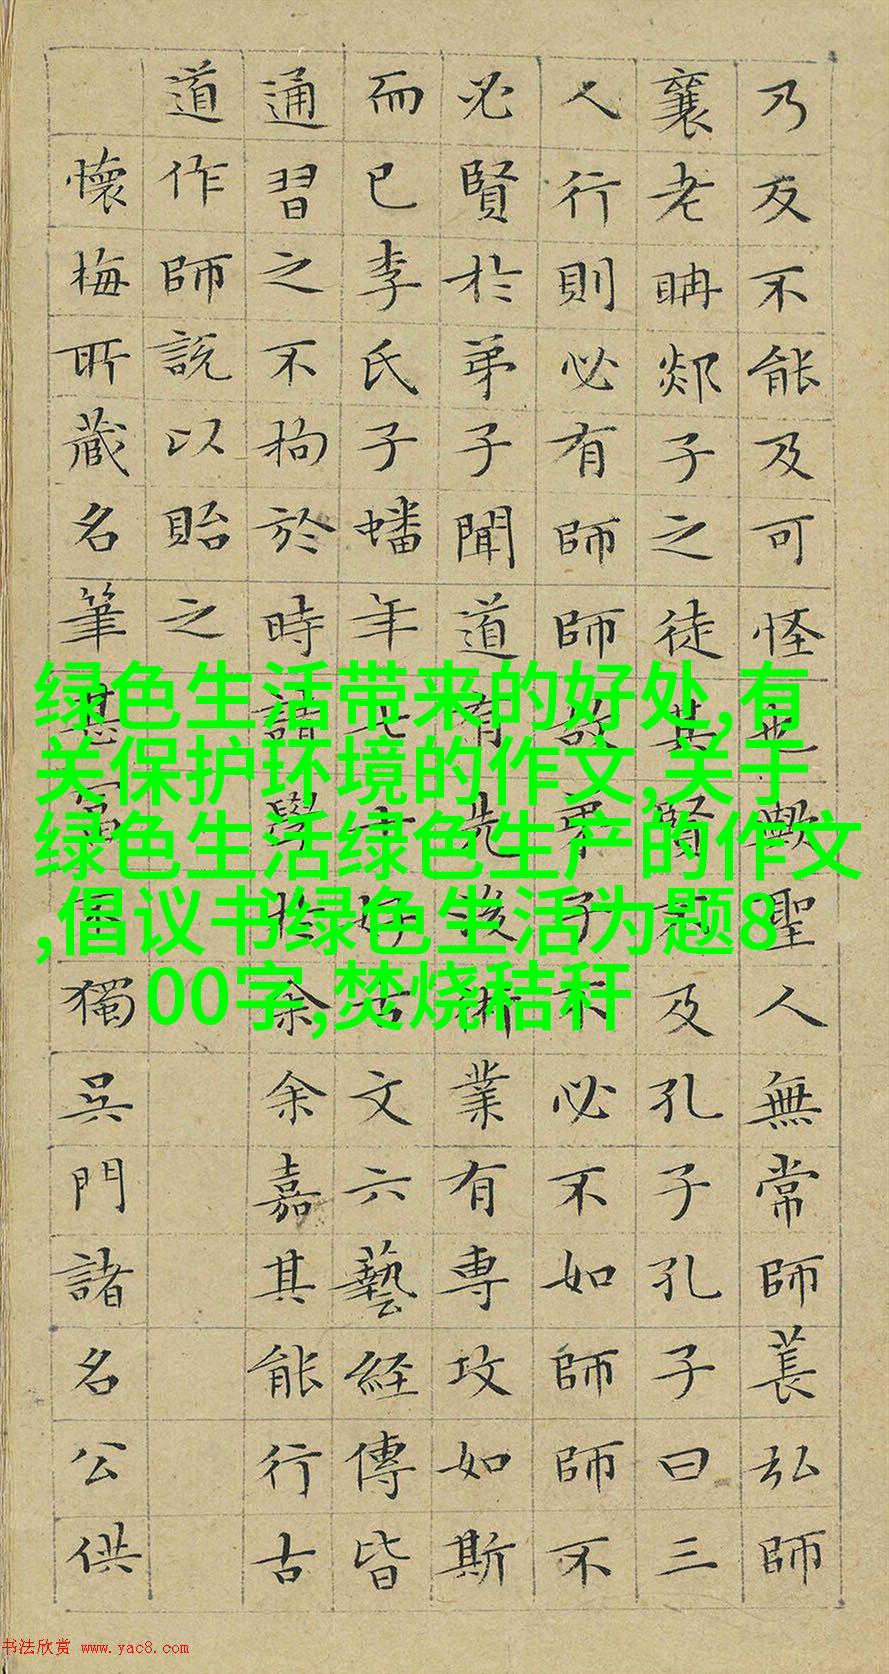 乃反不能及可怪也歟聖人無常師萇弘師
襄老聃郯子之徒其賢不及孔子孔子曰三
人行則必有師師故弟子不必不如師師不
必賢於弟子聞道有先後術業有專攻如斯
而已李氏子蟠年十七好古文六藝経傳皆
通習之不拘於時請學於余余嘉其能行古
道作師說以貽之
懷梅所藏名筆甚富不獨吳門諸名公供
绿色生活带来的好处,有
关保护环境的作文,关于
绿色生活绿色生产的作文
,倡议书绿色生活为题8
00字,焚烧秸秆
书法欣赏 www.yac8.com